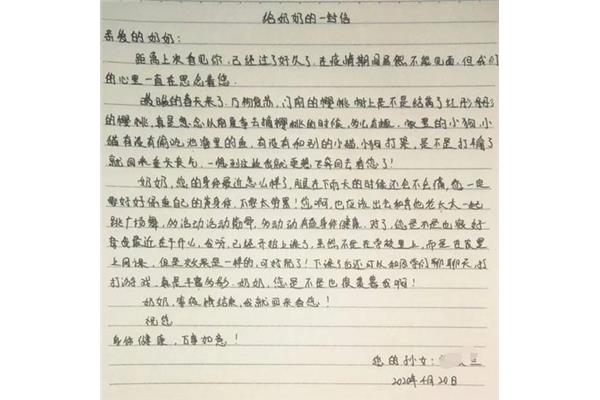 给奶奶的一封信
亲爱的奶奶：
距离上次看见你，已经过了好久了，在疫情期间虽然不能见面，但我们
的心里一直在思念着您。
温暖的春天来了，万物复苏，门前的樱桃树上是不是结满了红彤彤
的樱桃，真是想念从前夏季去摘樱桃的时候，多么有趣。家里的小狗，小
猫有没有偷吃池塘里的鱼，有没有和别的小猫，小狗打架，是不是打输了
就回来垂头丧气，一想到这些我就更想飞奔回去看您了！
奶奶，您的身体最近怎么样了，腿在下雨天的时候还会不会痛，您一定
要好好保重自己的身体，不要太劳累！您啊，也应该出去和其他老太太一起
跳广场舞，多活动活动筋骨，多动动有益身体健康。对了，您是不是也很好
奇我最近在干什么，我呀，已经开始上课了，虽然不是在学校里上，而是在家里
上网课，但是效果是一样的，可好玩了！下课了后还可以和同学们聊聊天，打
打游戏，真是丰富多彩。奶奶，您是不是也很羡慕我啊！
奶奶，等疫情结束，我就回来看您！
祝您
身体健康，万事如意！
您的孙女：
2020年4月20日